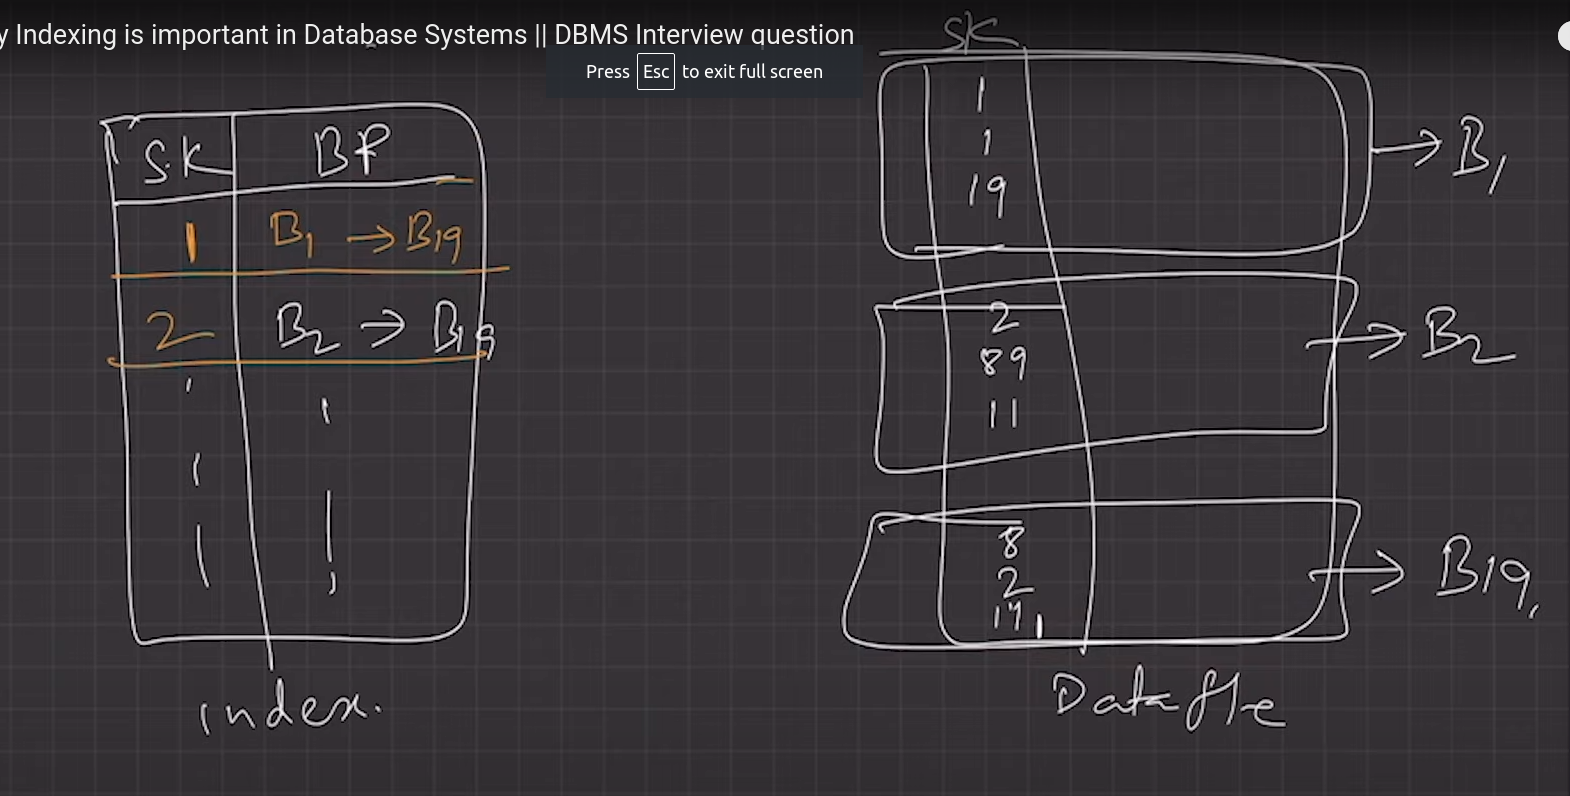 y Indexing is important in Database Systems || DBMS Interview question
Press Esc to exit full screen
S.K BP
1 B1 → B19
2 B2 → B19
index.
SK
1
1
19
→ B1
2
89
11
→ B2
8
2
→ B19,
Data file